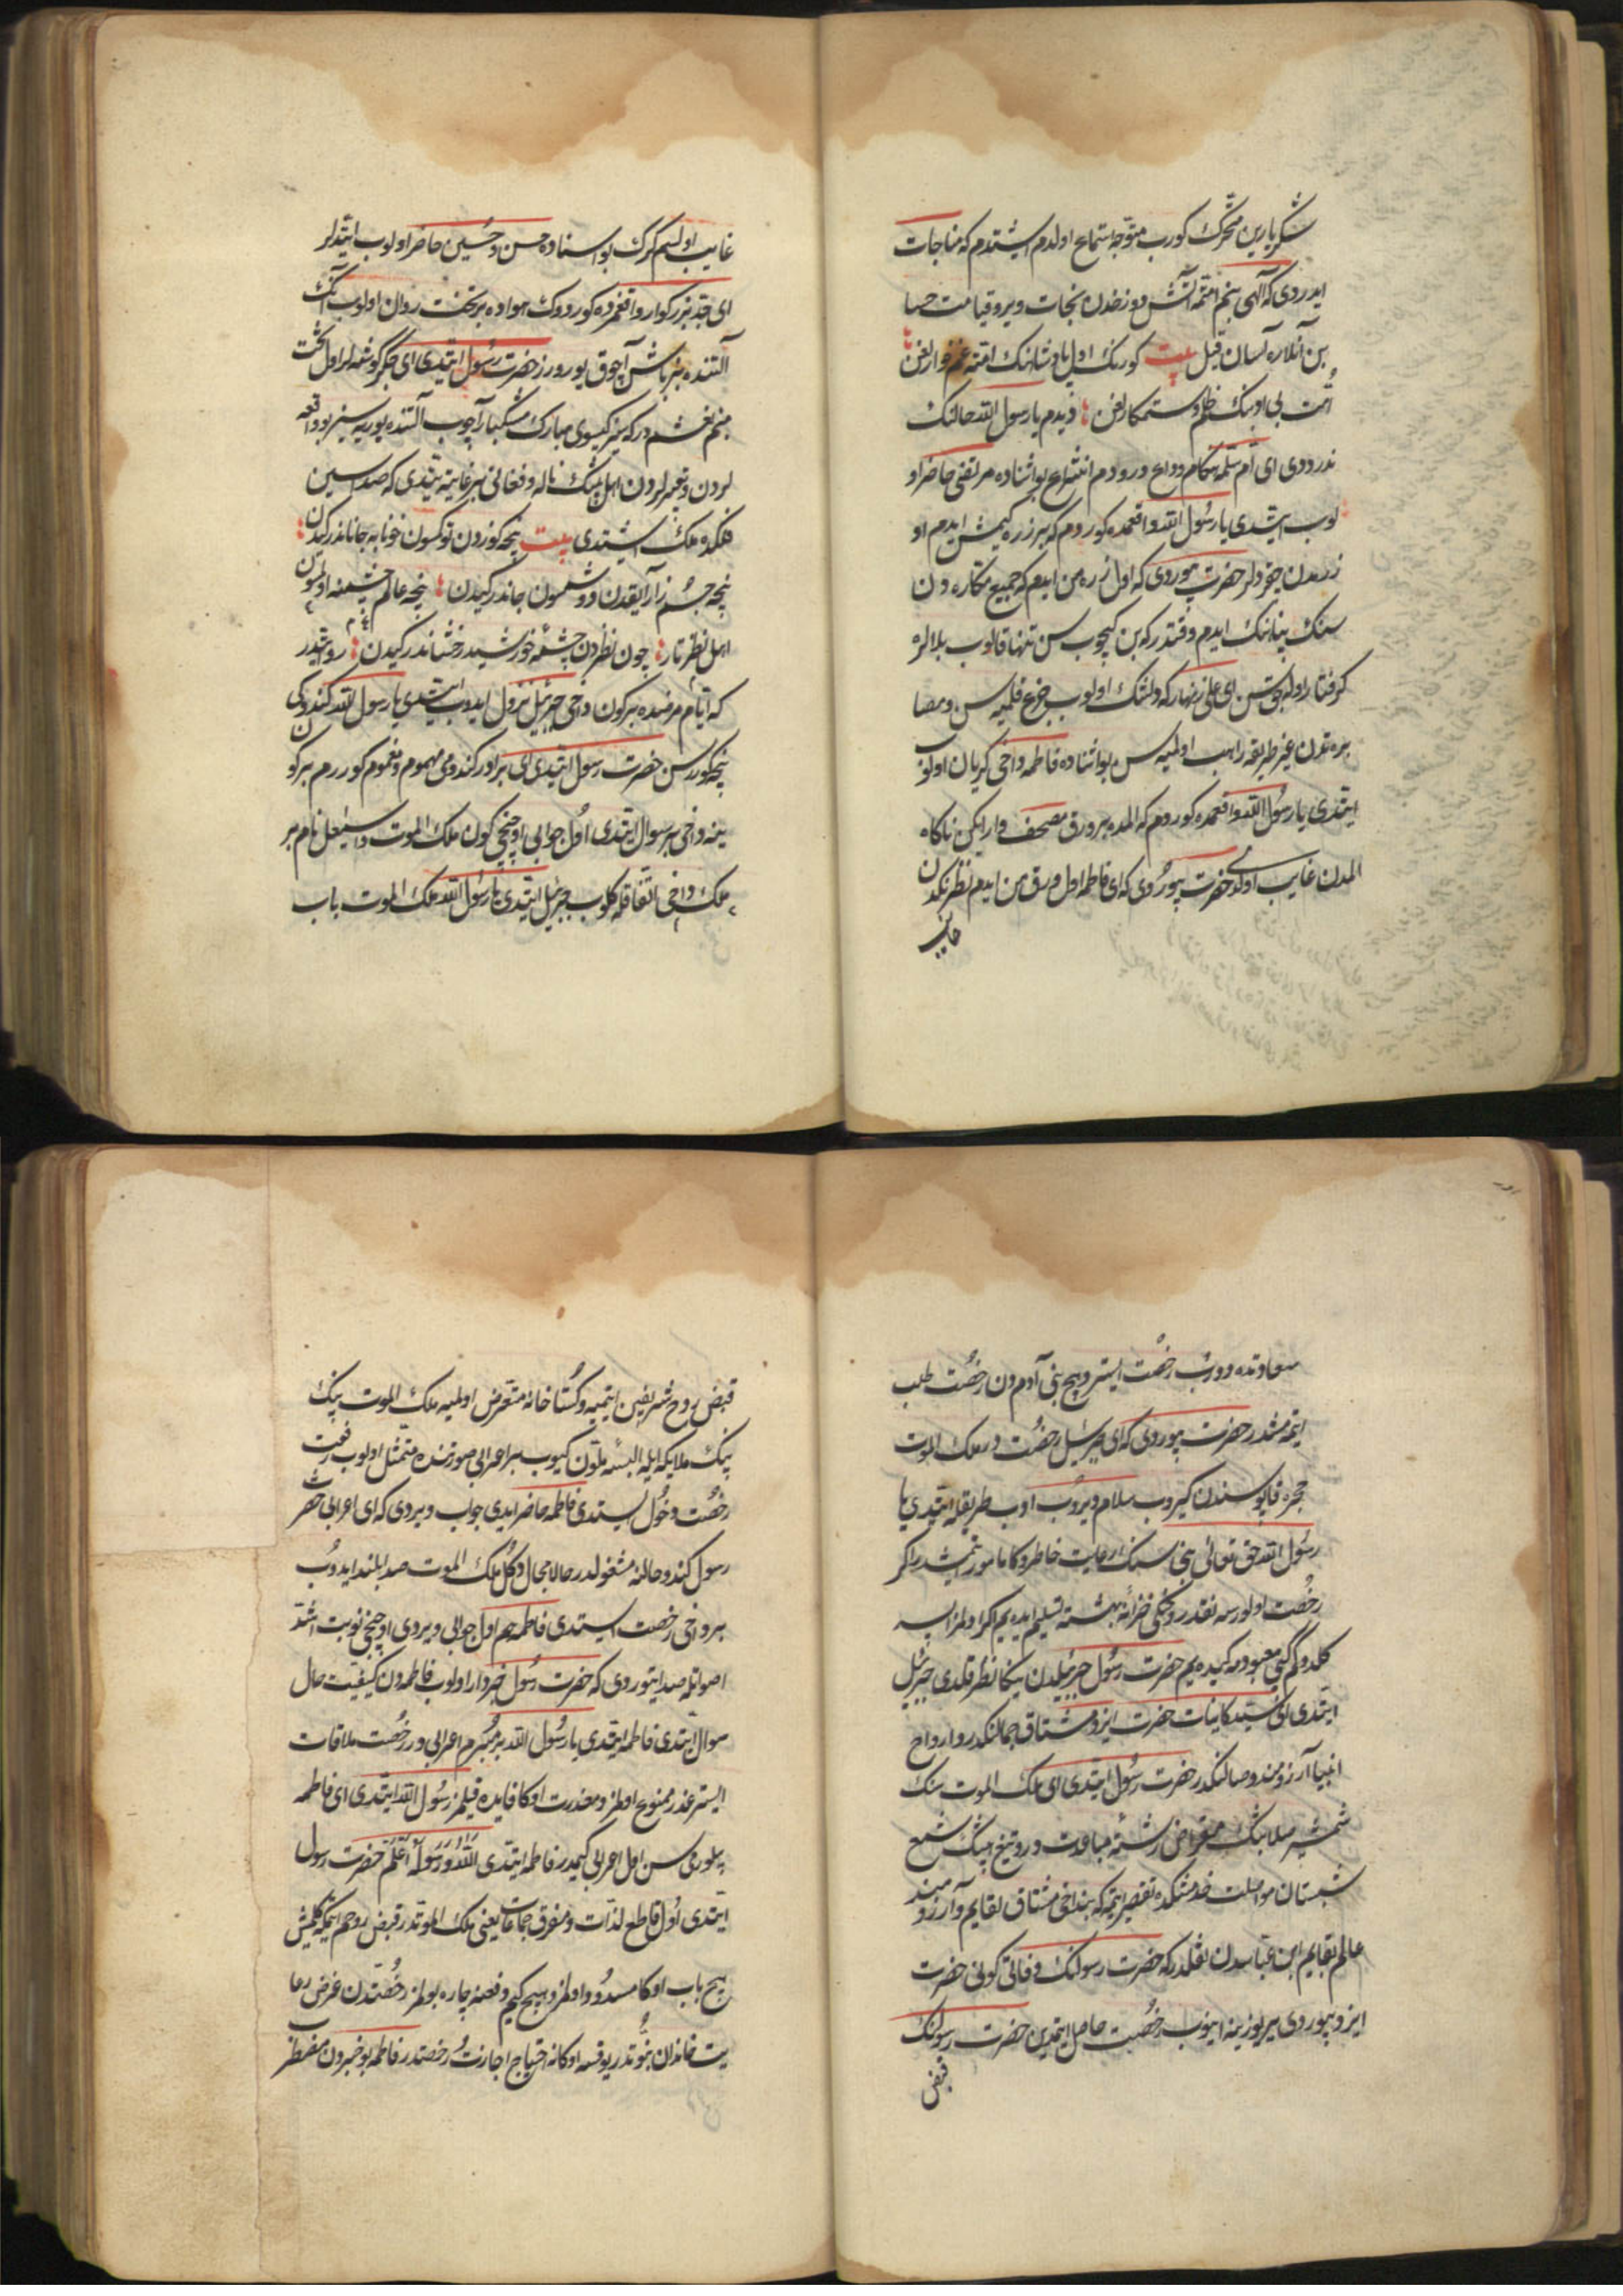 شكربارين متحرك كورب متوجه استماع اولدم اشتدم كه مناجات
ايدردى كه الهى بنم امتمه آتش دوزخدن نجات وير و قيامت حسا
بن آنلاره آسان قيل بيت كورنك اول پادشاهنك امته غمخوارلغن
امت بى ادبنك ظلم و ستمكارلغن ديدم يا رسول الله حالنك
ندر ددى اى ام سلمه هنكام وداع در بو اثناده مرتضى حاضر او
لوب ايتدى يا رسول الله واقعه‌ده كوردم كه بر زره كيمش ايدم او
زرمدن حضرت بيوردى كه اول زره من ايدم كه جميع مكاره دن
سنك پناهنك ايدم وقتدر كه بن كيچوب سن تنها قالوب بلالره
كرفتار اوله‌جقسن اى على زنهار كه دلتنك اولوب جزع قلميه‌سن و مصا
بره‌دن غير طريقه راهب اولميه‌سن بو اثناده فاطمه داخى كريان اولوب
ايتدى يا رسول الله واقعه‌ده كوردم كه المده بر ورق مصحف وار ايكن ناكاه
المدن غايب اولدى حضرت بيوردى كه اى فاطمه اول ورق من ايدم نظركدن
غايب
غايب اولسم كرك بو اثناده حسن و حسين حاضر اولوب ايتديلر
اى جد بزركوار واقعه‌مزده كوردوك هواده بر تخت روان اولوب آنك
آلتنده بز باش آچوق يورورز حضرت رسول ايتدى اى جكر كوشه‌لر اول تخت
منم نعشم در كه سز كيسوى مبارك مشكبار آچوب آلتنده يوريه‌سيز بو واقعه
لردن و تعبيرلردن اهل بيتك ناله و فغانى بر غايته يتدى كه صداسين
فلكده ملك اشتدى بيت نيجه كوزدن توكسون خونابه جاناندر كيدن
نيجه جسم زار آيقدن دوشمسون جاندر كيدن نيجه عالم چشمنه اولمسون
اهل نظر تار چون نظردن چشمه خورشيد رخشاندر كيدن روايتدر
كه ايام مرضده بر كون داخى جبرئيل نزول ايدوب ايتدى يا رسول الله كندوكى
نيجه كوررسن حضرت رسول ايتدى اى برادر كندومى مهموم و مغموم كوررم بر كون
ينه داخى بر سوال ايتدى اول جوابى اوچنجى كون ملك الموت و اسمعيل نام بر
ملك داخى اتفاقله كلوب جبرئيل ايتدى يا رسول الله ملك الموت باب
سعادتده دورب رخصت ايستر و هيچ بنى آدم دن رخصت طلب
ايتمه‌مشدر حضرت بيوردى كه اى جبرئيل رخصت در ملك الموت
حجره قاپوسندن كيروب سلام ويروب ادب طريقيله ايتدى يا
رسول الله حق تعالى بنى سنك رعايت خاطروكا مامور ايتمشدر اكر
رخصت اولورسه نقد روحكى خزانه بهشته تسليم ايده‌يم اكر اولمزايسه
كلدوكم كبى معبودمه كيده‌يم حضرت رسول جبرئيلدن يكا نظر قلدى جبرئيل
ايتدى اى سيد كاينات حضرت ايزد مشتاق جمالنكدر و ارواح
انبيا آرزومند وصالنكدر حضرت رسول ايتدى اى ملك الموت سنك
شمشير صلابتك مقراض رشته مباعدت در و تيغ هيبتك شمع
شبستان مواصلت خدمتكده تقصير ايتمه كه بن داخى مشتاق لقايم و آرزومند
عالم بقايم ابن عباسدن نقلدر كه حضرت رسولنك وفاتى كونى حضرت
ايزد بيوردى ير يوزينه اينوب رخصت حاصل ايتمدين حضرت رسولنك
قبض
قبض روح شريفين ايتميه و كستاخانه متعرض اولميه ملك الموت بيك
بيك ملايكه ايله البسه ملون كيوب بر اعرابى صورتنده متمثل اولوب رفعت
رخصت دخول ايستدى فاطمه حاضر ايدى جواب ويردى كه اى اعرابى حضر
رسول كندو حالنه مشغولدر حالا مجال دكل ملك الموت صدا بلند ايدوب
بر داخى رخصت ايستدى فاطمه هم اول جوابى ويردى اوچنجى نوبت اشد
اصواتله صدا يتوردى كه حضرت رسول خبردار اولوب فاطمه‌دن كيفيت حال
سوال ايتدى فاطمه ايتدى يا رسول الله بر مبرم اعرابى در رخصت ملاقات
ايستر عذر ممنوع اولمز و معذرت اوكا فايده قيلمز رسول الله ايتدى اى فاطمه
بيلورمى‌سن اول اعرابى كيمدر فاطمه ايتدى الله و رسوله اعلم حضرت رسول
ايتدى اول قاطع لذات و مفرق جماعات يعنى ملك الموتدر قبض روحم ايتمكه كلمش
هيچ باب اوكا مسدود اولمز و هيچ كيم دفعنه چاره بولمز رخصتدن غرض رعا
يت خاندان نبوتدر يوقسه اوكا نه احتياج اجازت رخصتدر فاطمه بو خبردن مضطر